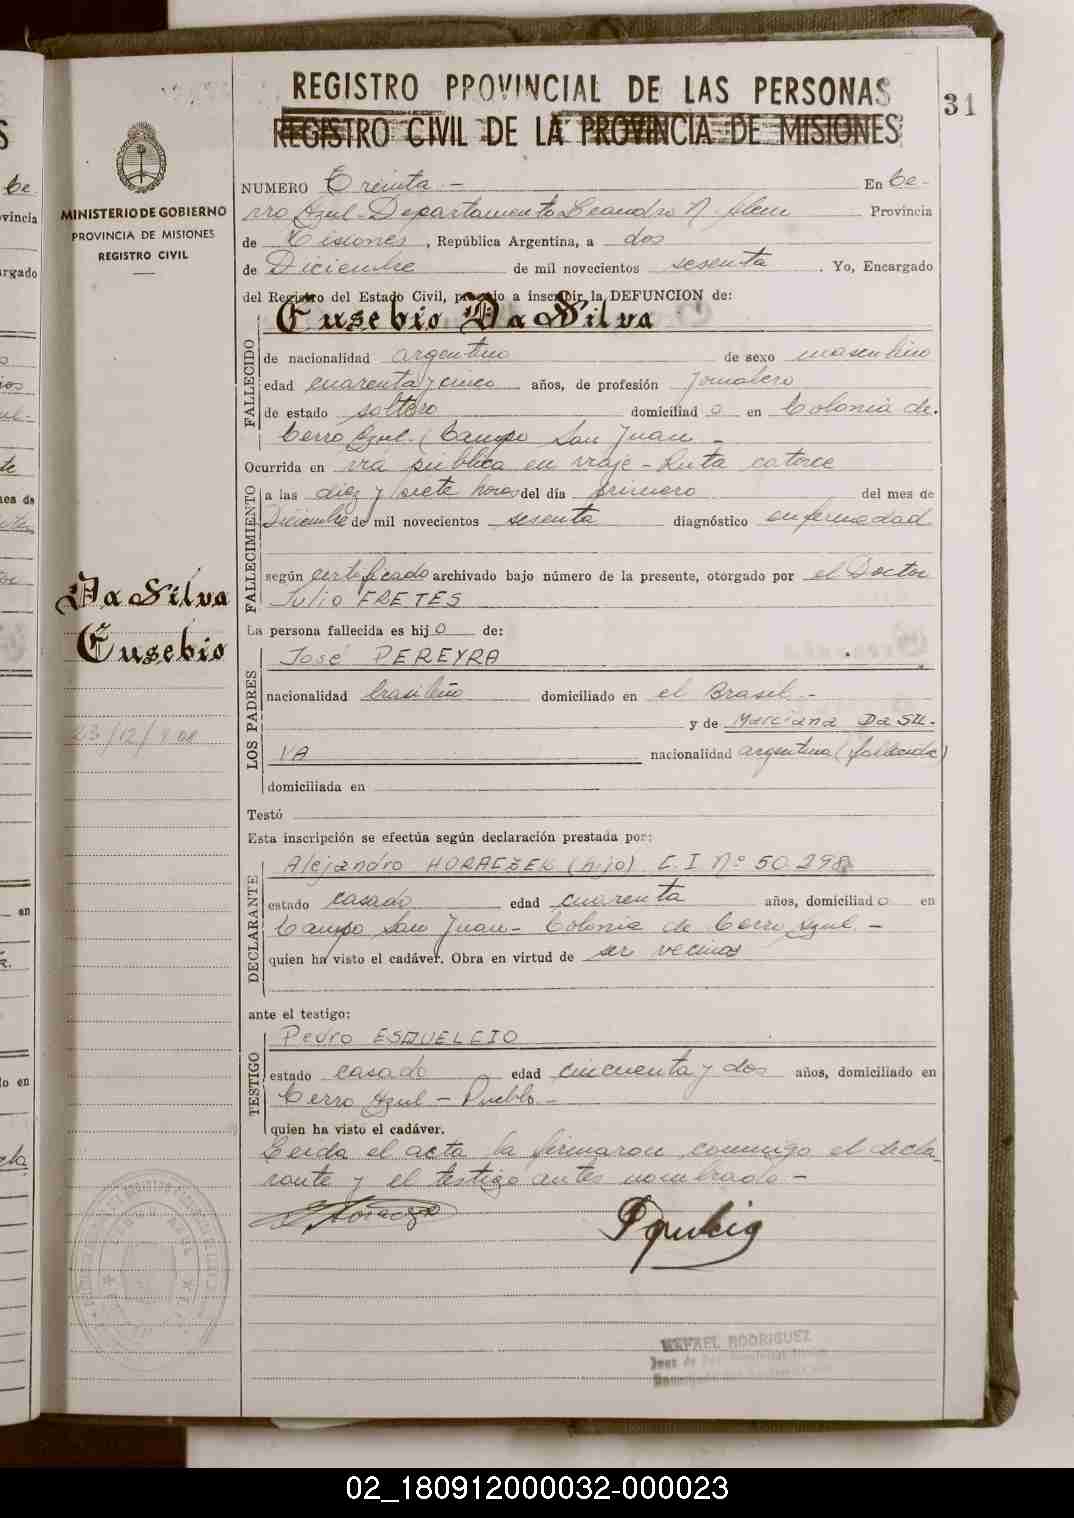 REGISTRO PROVINCIAL DE LAS PERSONAS
REGISTRO CIVIL DE LA PROVINCIA DE MISIONES
31
MINISTERIO DE GOBIERNO
PROVINCIA DE MISIONES
REGISTRO CIVIL
NUMERO Treinta - En Ce-
rro Azul - Departamento Leandro N. Alem Provincia
de Misiones, República Argentina, a dos
de Diciembre de mil novecientos sesenta. Yo, Encargado
del Registro del Estado Civil, procedo a inscribir la DEFUNCION de:
Eusebio Da Silva
FALLECIDO
de nacionalidad argentino de sexo masculino
edad cuarenta y cinco años, de profesión Jornalero
de estado soltero domiciliad o en Colonia de.
Cerro Azul. (Campo San Juan -
Ocurrida en vía pública en viaje - Ruta catorce
FALLECIMIENTO
a las diez y siete horas del día primero del mes de
Diciembre de mil novecientos sesenta diagnóstico enfermedad
según certificado archivado bajo número de la presente, otorgado por el Doctor
Julio FRETES
Da Silva
Eusebio
La persona fallecida es hij o de:
LOS PADRES
José PEREYRA
nacionalidad brasileño domiciliado en el Brasil -
y de Marciana Da SIL-
VA nacionalidad argentina (fallecida)
domiciliada en
Testó
Esta inscripción se efectúa según declaración prestada por:
DECLARANTE
Alejandro HORACZEK (hijo) C.I Nº 50.298
estado casado edad cuarenta años, domiciliad o en
Campo San Juan - Colonia de Cerro Azul. -
quien ha visto el cadáver. Obra en virtud de ser vecinos
ante el testigo:
TESTIGO
Pedro
estado casado edad cincuenta y dos años, domiciliado en
Cerro Azul - Pueblo -
quien ha visto el cadáver.
Leida el acta la firmaron conmigo el decla-
rante y el testigo antes nombrado -
RAFAEL RODRIGUEZ
02_180912000032-000023